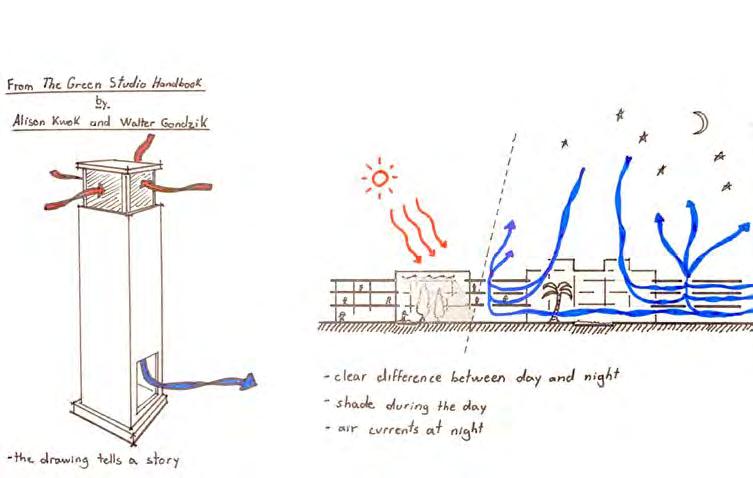 From The Green Studio Handbook
by
Alison Kwok and Walter Gondzik
-the drawing tells a story
-clear difference between day and night
- shade during the day
- air currents at night